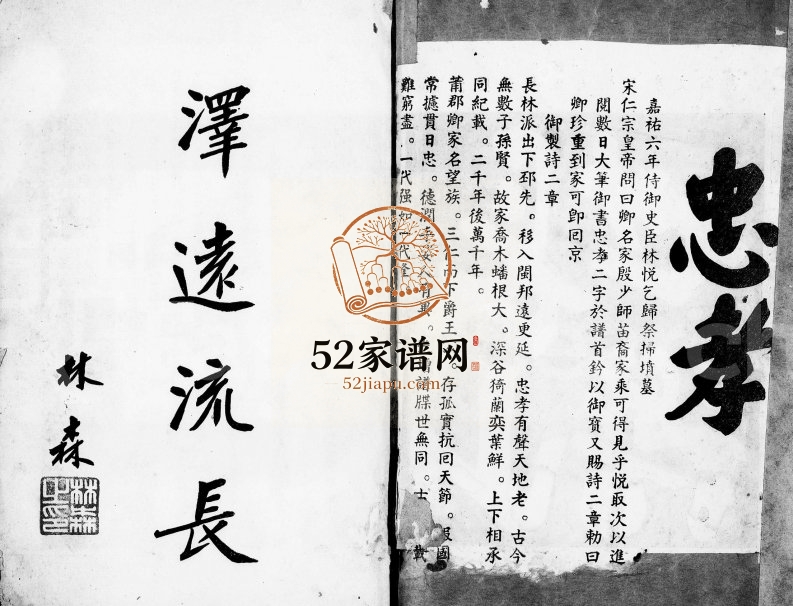 忠孝
嘉祐六年侍御史臣林悅乞歸祭掃墳墓
宋仁宗皇帝問曰卿名家殷少師苗裔家乘可得見乎悅取次以進
閱數日大筆御書忠孝二字於譜首鈐以御寶又賜詩二章勅曰
卿珍重到家可卽回京
御製詩二章
長林派出下邳先。移入閩邦遠更延。忠孝有聲天地老。古今
無數子孫賢。故家喬木蟠根大。深谷猗蘭奕葉鮮。上下相承
同紀載。二千年後萬千年。
莆郡卿家名望族。三仁而下爵王。存孤實抗回天節。報國
常攄貫日忠。德潤 譜牒世無同。古
難窮盡。一代强如一代
澤遠流長
林森
林森之印
52家谱网
52jiapu.com